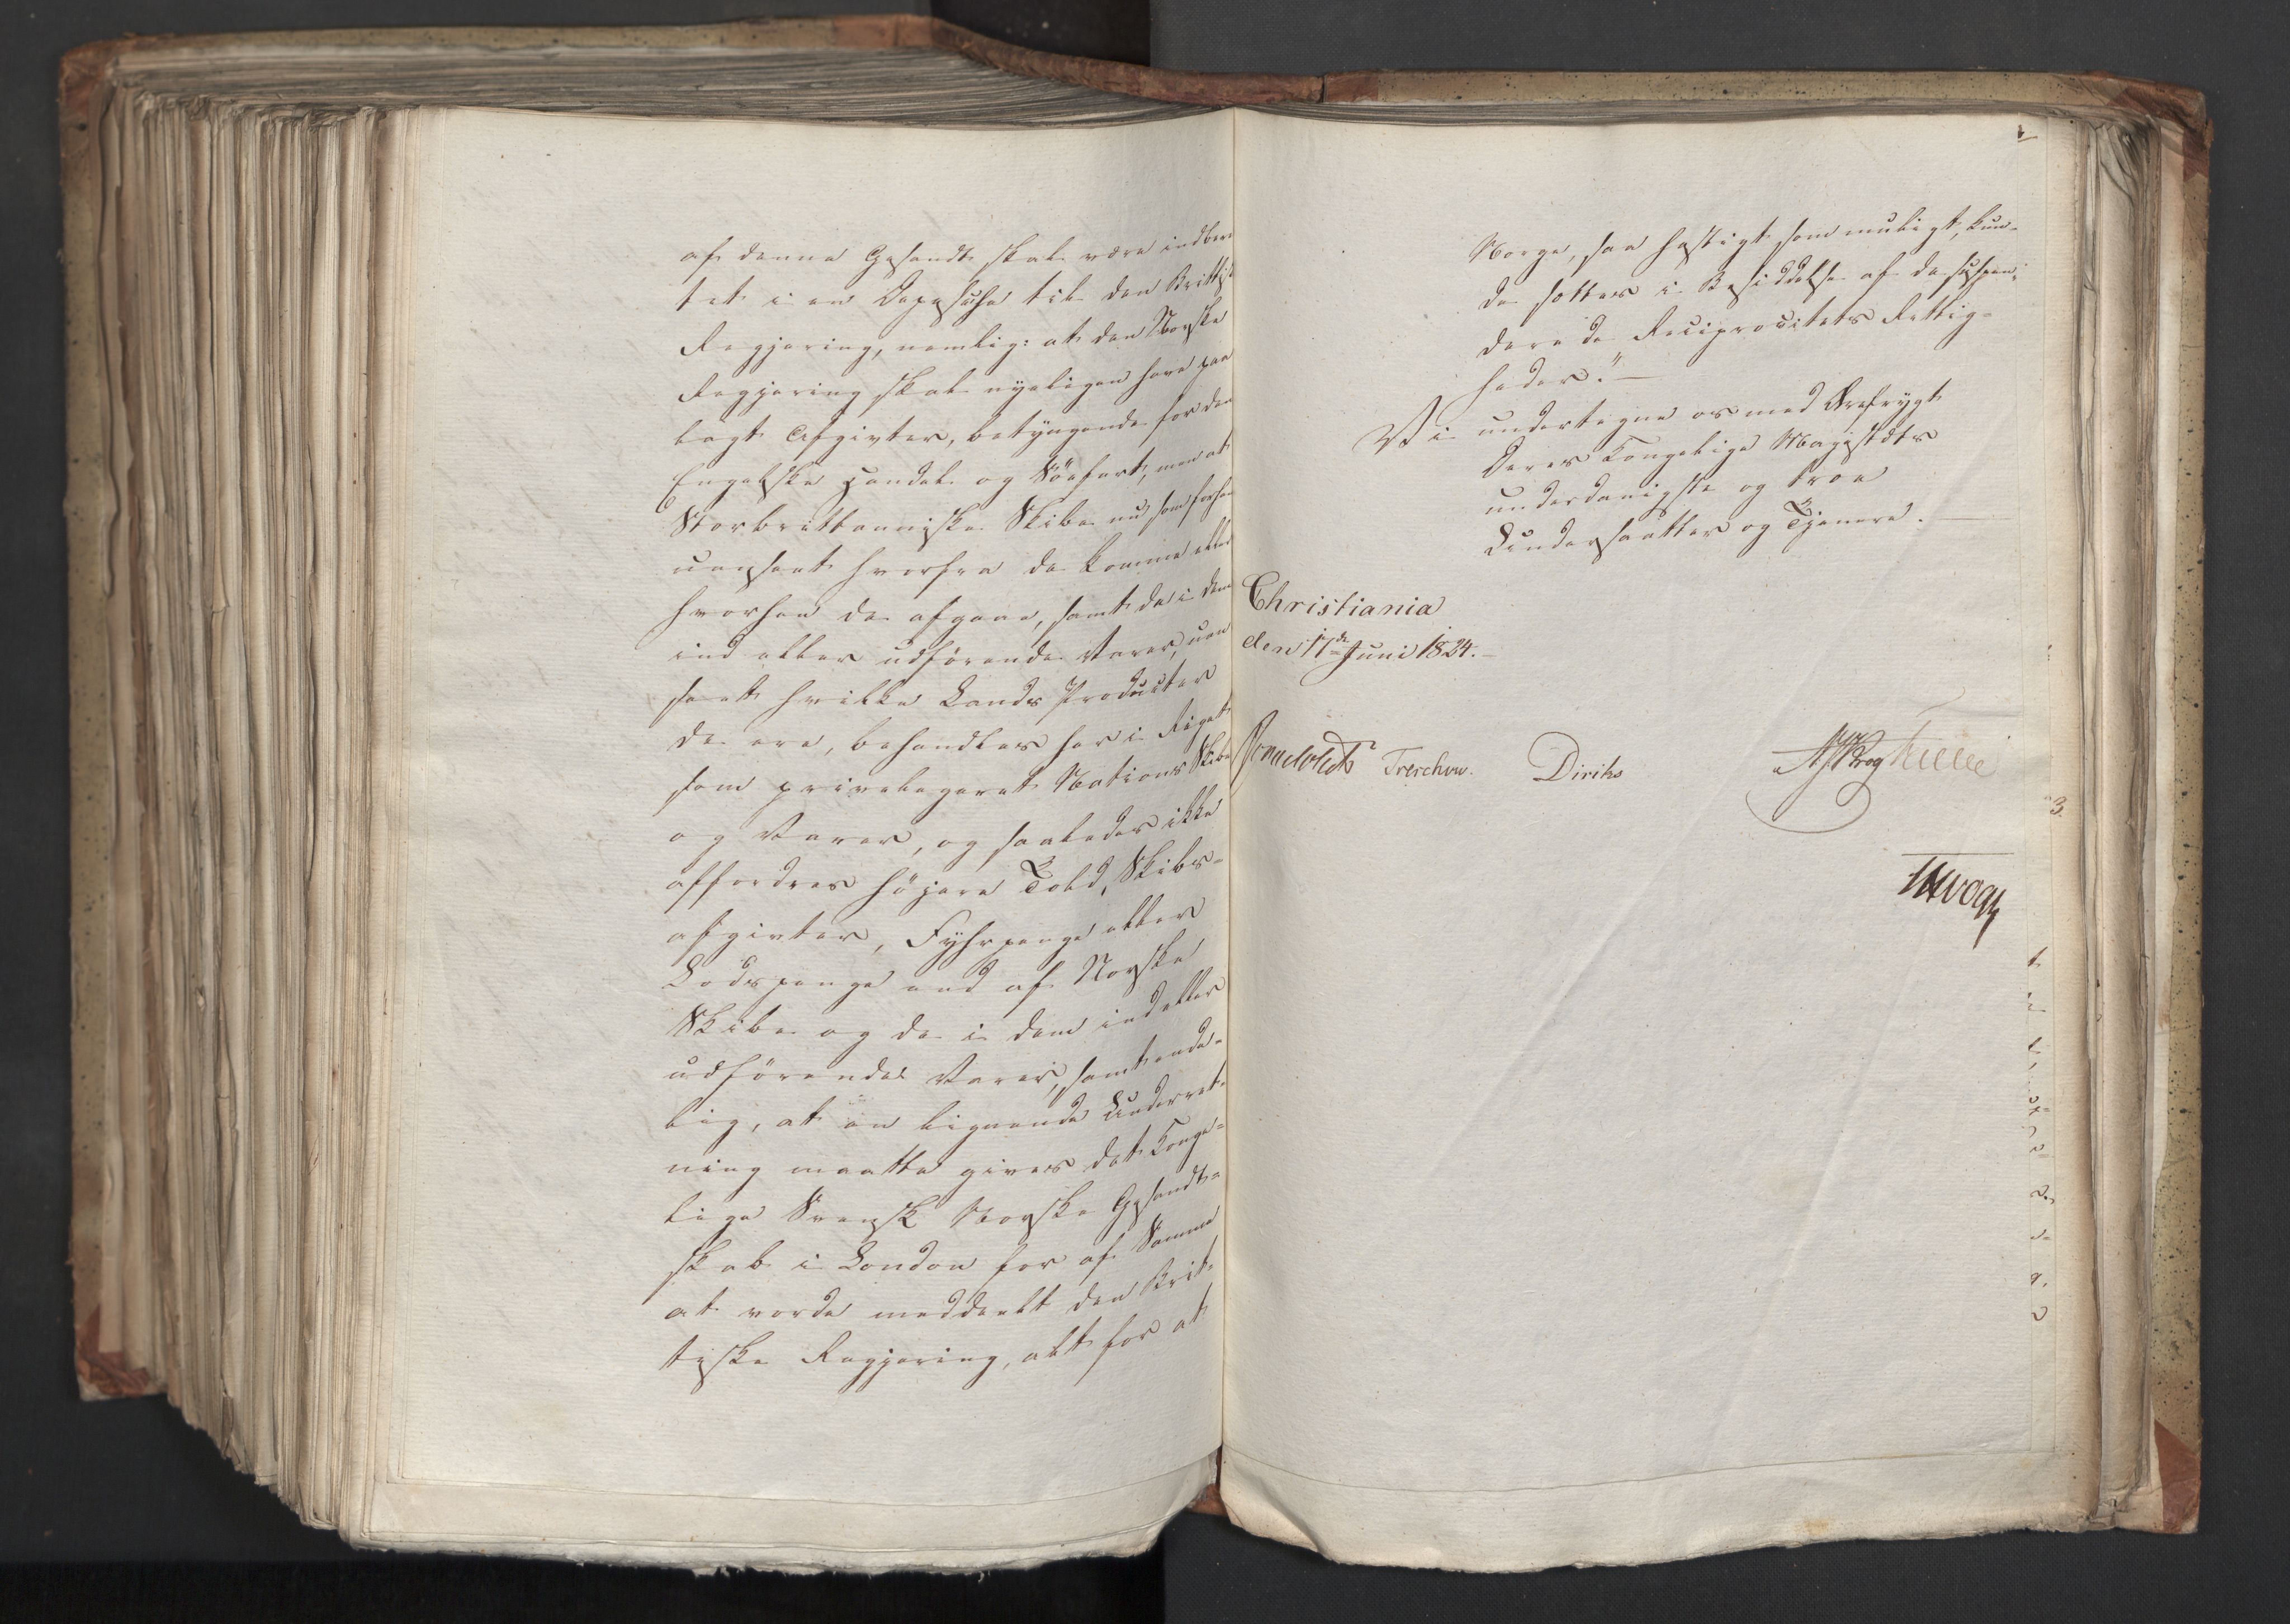 af denne Gesandt skal være indberet-
tet i en Depesche til den Brittiske
Regjering, nemlig: at den Norske
Regjering skal nyeligen have paa-
lagt Afgivter, betyngende for den
Engelske Handel og Söefart, men at
Storbrittanniske Skibe nu, som forhen
uanseet hvorfra de komme eller
hvorhen de afgaae, samt de i dem
ind eller udförende Varer, uan-
seet hvilke Lands Producter
de ere, behandles her i Riget
som privelegeret Nations Skibe
og Varer, og saaledes ikke
affordres höjere Told, Skibs-
afgivter, Fyhrpenge eller
Lodspenge end af Norske
Skibe og de i dem ind eller
udförende Varer, samt ende-
lig, at en lignende Underret-
ning maatte gives det Konge-
lige Svensk Norske Gesandt-
skab i London for af Samme
at vorde meddeelt den Brit-
tiske Regjering, alt for at
Norge, saa hastigt som muligt, kun-
de sættes i Besiddelse af de suspen-
derede Reciprocitets Rettig-
heder." —
Vi undertegne os med Ærefrygt
Deres Kongelige Majestæts
underdanigste og troe
Undersaatter og Tjenere. —
Christiania
den 17de Juni 1824. —
Sommerhielm Treschow. Diriks
Krog
JHVogt